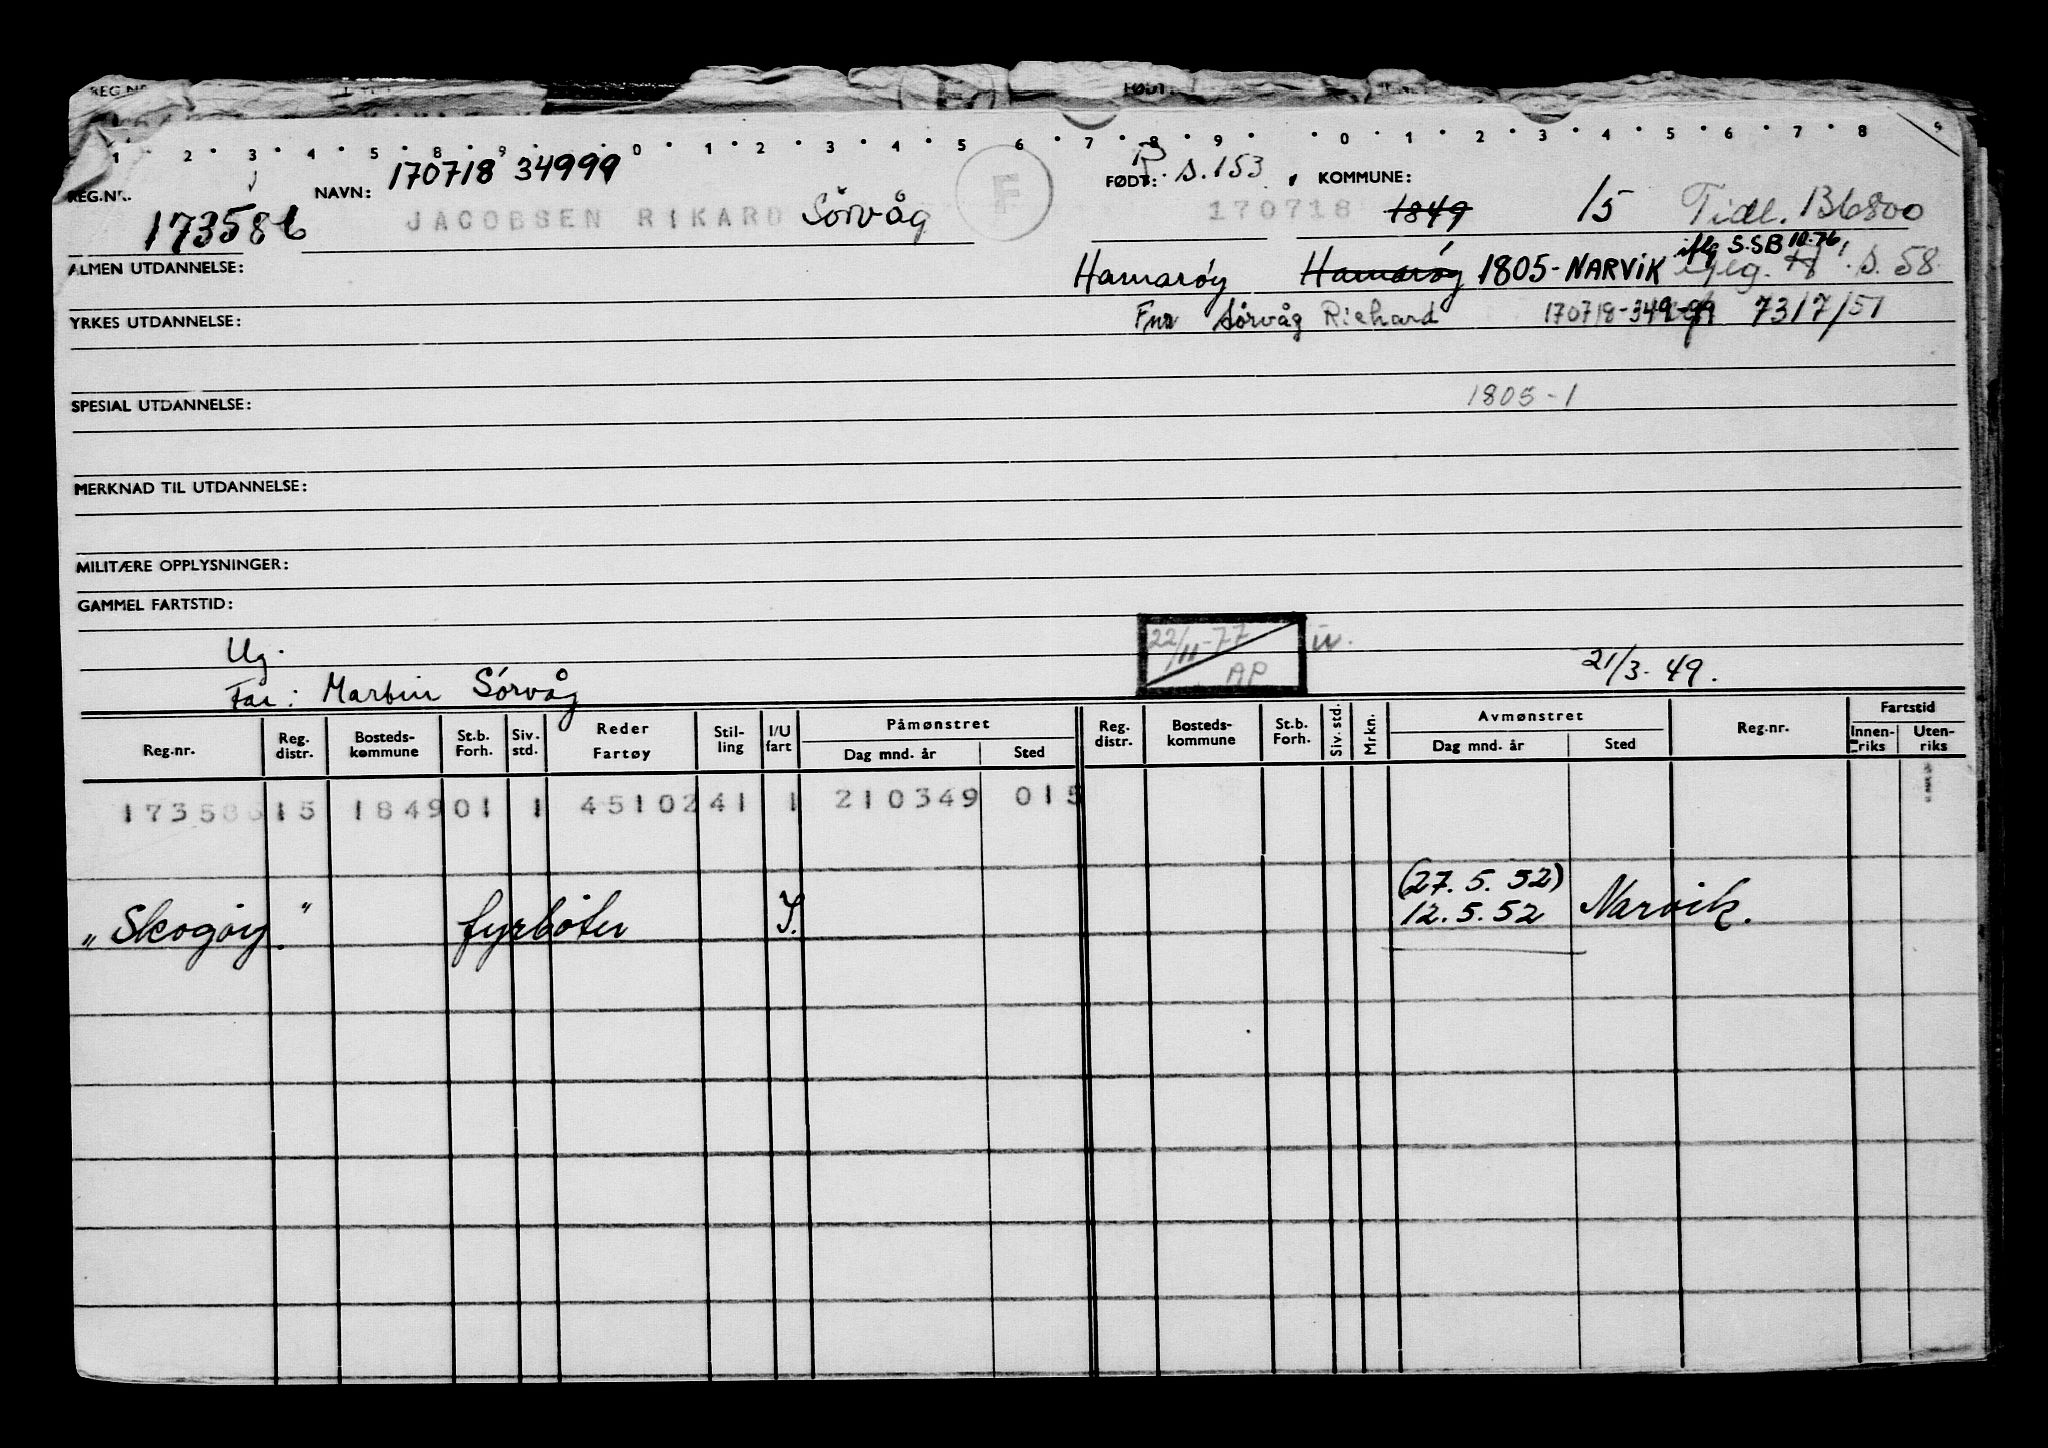 REG.NR.
FØDT
1 . 2 . 3 . 4 . 5 . 8 . 9 . 0 . 1 . 2 . 3 . 4 . 5 6 . 7 . 8 . 9 . . 0 . 1 . 2 . 3 . 4 . 5 . 6 . 7 . 8 9
REG.NR. NAVN: 170718 34999 FØDT: s. 153 KOMMUNE:
173586 JACOBSEN RIKARD Sörvåg F 170718 1849 15 Tidl. B6800
ALMEN UTDANNELSE: Hamarøy Hamarøy 1805-NARVIK iflg S.SB 10.76 s. 58
YRKES UTDANNELSE: Fnr Sörvåg Richard 170718-34999 7317/51
SPESIAL UTDANNELSE: 1805-1
MERKNAD TIL UTDANNELSE:
MILITÆRE OPPLYSNINGER:
GAMMEL FARTSTID:
Ug. 22/11-77 AP 21/3-49.
Far: Martin Sörvåg
Reg.nr. Reg. distr. Bosteds-kommune St.b. Forh. Siv. std. Reder Fartøy Stil-ling I/U fart Påmønstret Dag mnd. år Sted Reg. distr. Bosteds-kommune St.b. Forh. Siv. std. Mrkn. Avmønstret Dag mnd. år Sted Reg.nr. Fartstid Innen-riks Uten-riks
173586 15 1849 01 1 45102 41 1 210349 015
(27.5.52)
"Skogøy." fyrbøter I. 12.5.52 Narvik.